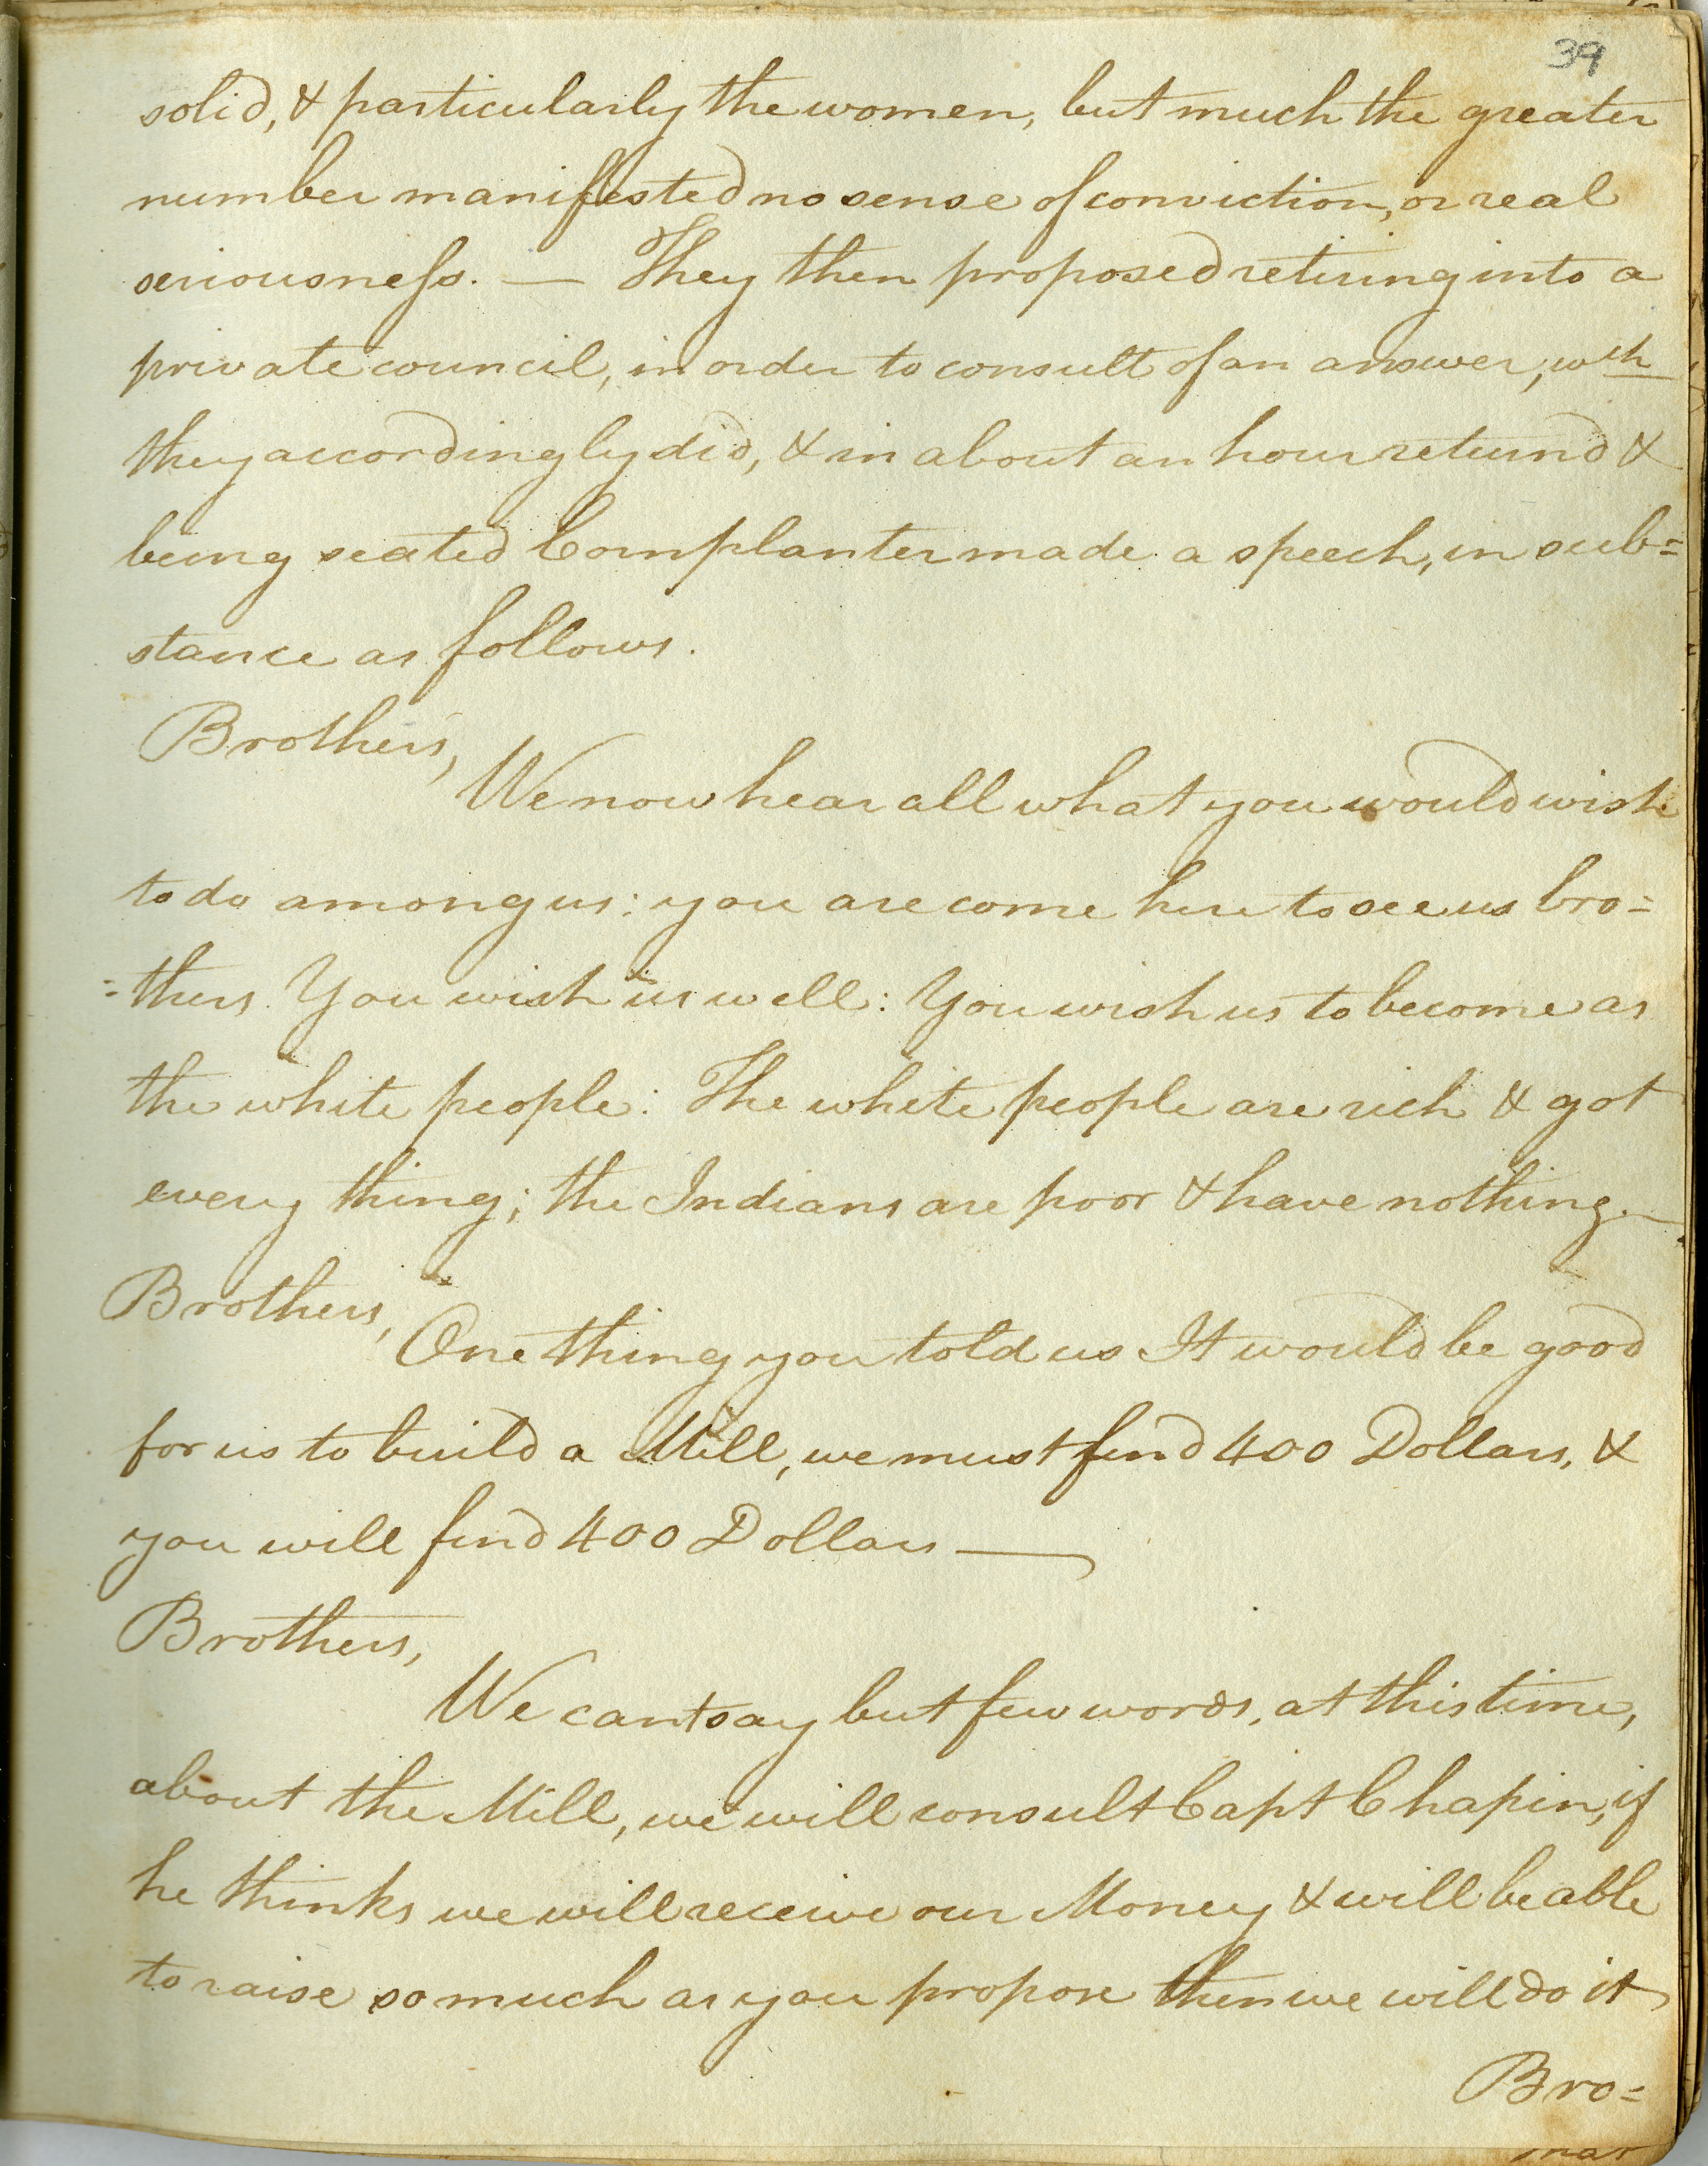 39
solid, & particularly the women, but much the greater
number manifested no sense of conviction, or real
seriousness. — They then proposed retiring into a
private council, in order to consult of an answer, wch
they accordingly did, & in about an hour returnd &
being seated Cornplanter made a speech, in sub=
stance as follows.
Brothers,
We now hear all what you would wish
to do among us: you are come here to see us bro=
=thers. You wish us well: You wish us to become as
the white people: The white people are rich & got
every thing; the Indians are poor & have nothing.—
Brothers,
One thing you told us It would be good
for us to build a Mill, we must find 400 Dollars, &
you will find 400 Dollars —
Brothers,
We cant say but few words, at this time,
about the Mill, we will consult Capt Chapin, if
he thinks we will receive our Money & will be able
to raise so much as you propose then we will do it
Bro=